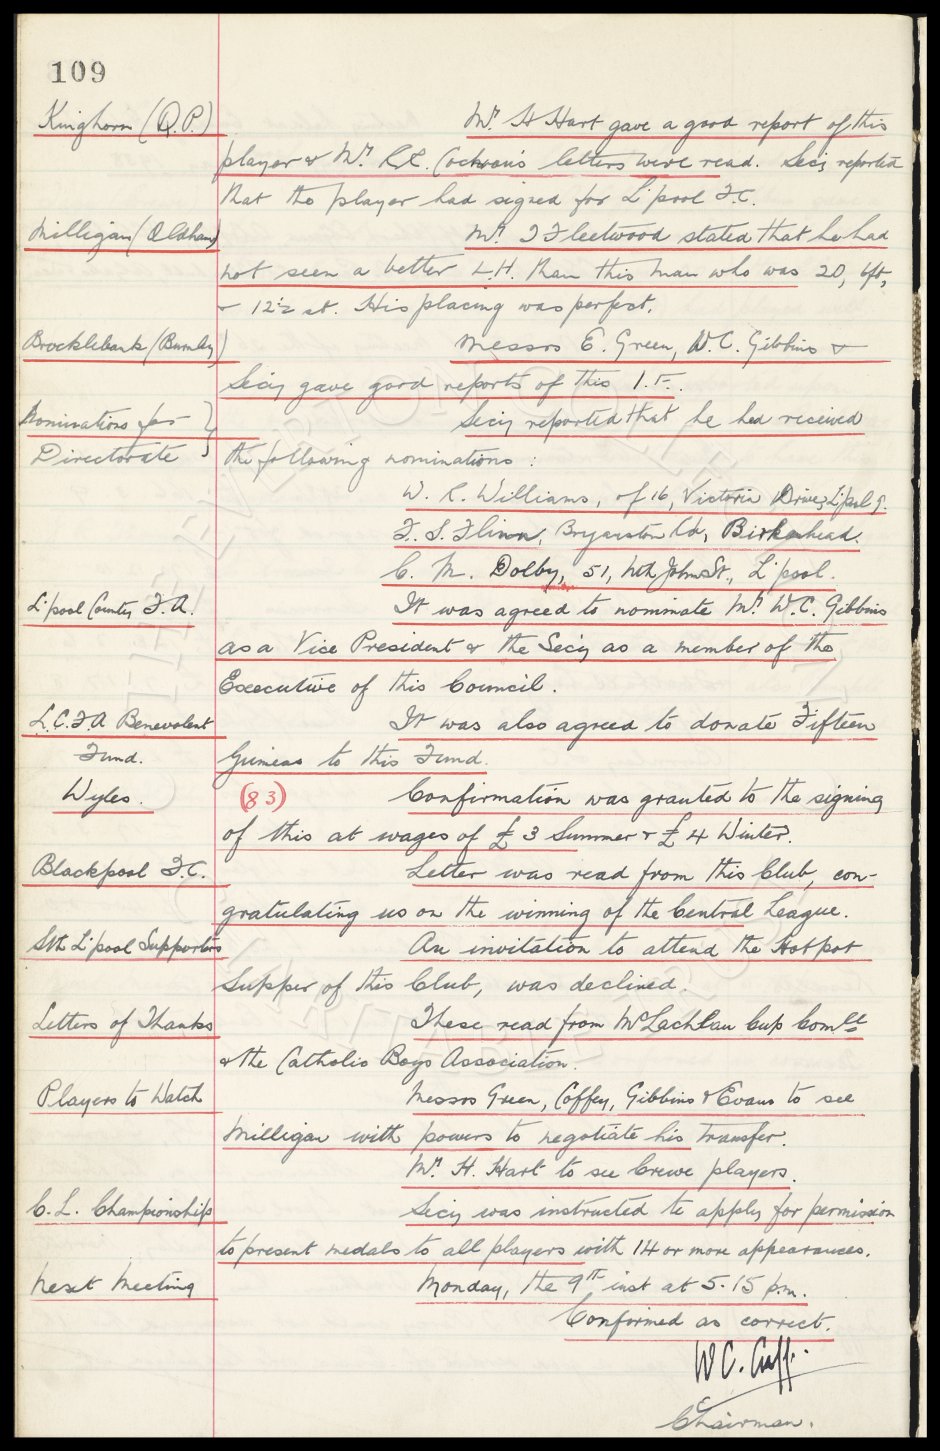 109
Kinghorn (Q.P.) Mr. H Hart gave a good report of this
player & Mr. letters were read. Secy reported
that the player had signed for L'pool F.C.
Milligan (Oldham) Mr. J Fleetwood stated that he had
not seen a better L.H. than this man who was 20, 6ft,
& 12½ st. His placing was perfect.
Brocklebank (Burnley) Messrs E. Green, W.C. Gibbins &
Secy gave good reports of this I.F..
Nominations for Secy reported that he had received
Directorate } the following nominations :
W. R. Williams, of 16, Victoria Drive, L'pool 9.
F. S. Flinn, Bryanston Rd, Birkenhead.
C. M. Dolby, 51, Nth John St., L'pool.
L'pool County F.A. It was agreed to nominate Mr. W.C. Gibbins
as a Vice President & the Secy as a member of the
Executive of this Council.
L.C.F.A Benevolent It was also agreed to donate Fifteen
Fund. Guineas to this Fund.
Wyles. (83) Confirmation was granted to the signing
of this at wages of £3 Summer & £4 Winter.
Blackpool F.C. Letter was read from this Club, con-
gratulating us on the winning of the Central League.
Sth L'pool Supporters An invitation to attend the Hotpot
Supper of this Club, was declined.
Letters of Thanks These read from McLachlan Cup Comtt
& the Catholic Boys Association.
Players to Watch Messrs Green, Coffey, Gibbins & Evans to see
Milligan with powers to negotiate his transfer.
Mr. H. Hart to see Crewe players.
C.L. Championship Secy was instructed to apply for permission
to present medals to all players with 14 or more appearances.
Next Meeting Monday, the 9th inst at 5.15 p.m.
Confirmed as correct.
W C. Cuff.
Chairman.